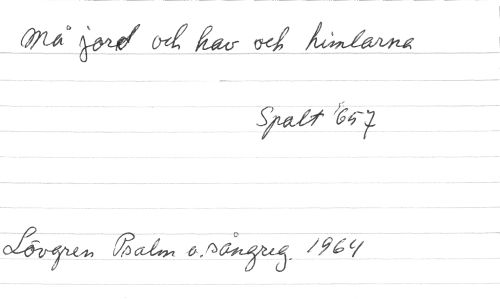 Må jord och hav och himlarna
Spalt 657
Lövgren Psalm o. sångreg. 1964